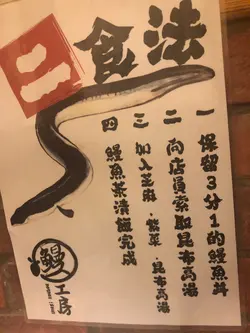 二食法
一 保留3分1的鰻魚丼
二 向店員索取昆布高湯
三 加入芝麻、紫菜、昆布高湯
四 鰻魚茶漬飯完成
鰻
工房